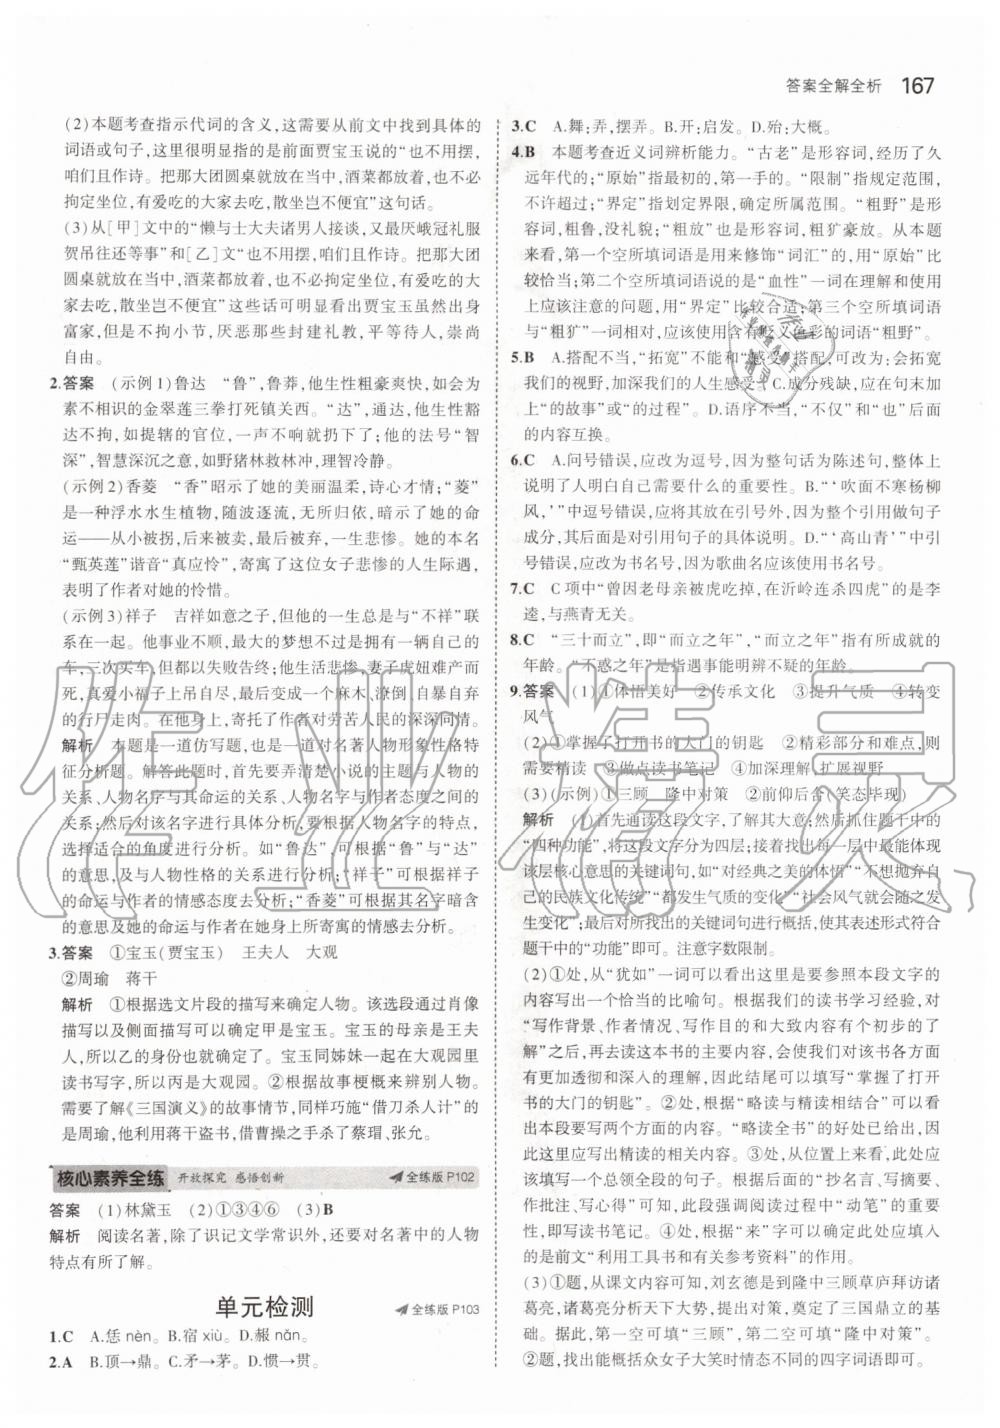 答案全解全析 167
(2)本题考查指示代词的含义,这需要从前文中找到具体的
词语或句子,这里很明显指的是前面贾宝玉说的“也不用摆,
咱们且作诗。把那大团圆桌就放在当中,酒菜都放着。也不必
拘定坐位,有爱吃的大家去吃,散坐岂不便宜”这句话。
(3)从[甲]文中的“懒与士大夫诸男人接谈,又最厌峨冠礼服
贺吊往还等事”和[乙]文“也不用摆,咱们且作诗。把那大团
圆桌就放在当中,酒菜都放着。也不必拘定坐位,有爱吃的大
家去吃,散坐岂不便宜”这些话可明显看出贾宝玉虽然出身
富家,但行为却不同于流俗,厌恶那些封建礼教,平等待人,崇尚
自由。
2.答案 (示例1)鲁达 “鲁”,鲁莽,他生性粗豪爽快,如会为
素不相识的金翠莲三拳打死镇关西。“达”,通达,他生性豁
达不拘,如提辖的官位,一声不响就扔下了;他的法号“智
深”,智慧深沉之意,如野猪林救林冲,理智冷静。
(示例2)香菱 “香”昭示了她的美丽温柔,诗心才情;“菱”
是一种浮水水生植物,随波逐流,无所归依,暗示了她的命
运——从小被拐,后来被卖,命运一直悲惨。她的本名
“甄英莲”谐音“真应怜”,寄寓了这位女子悲惨的人生际遇,
表明了作者对她的怜惜。
(示例3)祥子 吉祥如意之子,但他的一生总是与“不祥”联
系在一起。他事业不顺,最大的梦想不过是拥有一辆自己的
车,三次买车,但都以失败告终;他生活悲惨,妻子虎妞难产而
死,真爱小福子上吊自尽,他最终变成一个麻木、潦倒、自暴自弃
的行尸走肉。在他身上,寄托了作者对劳苦人民的深深同情。
解析 本题是一道仿写题,也是一道对名著人物形象性格特
征分析题。解答此题时,首先要弄清楚小说的主题与人物的
关系、人物名字与其命运的关系、人物名字与作者态度之间的
关系;然后对该名字进行具体分析,要根据人物名字的特点,
选择适合的角度进行分析。如“鲁达”,可根据“鲁”与“达”
的意思,及与人物性格的关系进行分析;“祥子”可根据祥子
的命运及作者的情感态度去分析;“香菱”可根据其名字暗含
的意思及她的命运与作者对她所寄寓的情感去分析。
3.答案 ①宝玉(贾宝玉) 王夫人 大观
②周瑜 蒋干
解析 ①根据选文片段的描写来确定人物。该选段通过肖像
描写以及侧面描写可以确定甲是宝玉。宝玉的母亲是王夫
人,所以乙的身份也就确定了。宝玉同姊妹一起在大观园里
读书写字,所以丙是大观园。②根据故事梗概来辨别人物。
需要了解《三国演义》的故事情节,同样巧施“借刀杀人计”的
是周瑜,他利用蒋干盗书,借曹操之手杀了蔡瑁、张允。
核心素养全练 开放探究 感悟创新 全练版P102
答案 (1)林黛玉 (2)①③④⑥ (3)B
解析 阅读名著,除了识记文学常识外,还要对名著中的人物
特点有所了解。
单元检测 全练版P103
1.C A.恁nèn。B.宿xiù。D.赧nǎn。
2.A B.顶→鼎。C.矛→茅。D.惯→贯。
3.C A.舞;弄,摆弄。B.开;启发。D.殆;大概。
4.B 本题考查近义词辨析能力。“古老”是形容词,经历了久
远年代的;“原始”指最初的,第一手的。“限制”指规定范围,
不许超过;“界定”指划定界限,确定所属范围。“粗野”是形
容词,粗鲁,没礼貌;“粗放”也是形容词,粗犷豪放。从本题
来看,第一个空所填词语是用来修饰“词汇”的,用“原始”比
较恰当;第二个空所填词语说的是“血性”一词在理解和使用
上应该注意的问题,用“界定”比较合适;第三个空所填词语
与“粗犷”一词相对,应该使用含有贬义色彩的词语“粗野”。
5.B A.搭配不当,“拓宽”不能和“感受”搭配,可改为会拓宽
我们的视野,加深我们的人生感受;C.成分残缺,应在句末加
上“的故事”或“的过程”。D.语序不当,“不仅”和“也”后面
的内容互换。
6.C A.问号错误,应改为逗号,因为整句话为陈述句,整体上
说明了人明白自己需要什么的重要性。B.“‘吹面不寒杨柳
风,’”中逗号错误,应将其放在引号外,因为引用做句子
成分,其后面应是对引用句子的具体说明。D.“‘高山青’”中引
号使用错误,应改为书名号,因为歌曲名应该使用书名号。
7.C C项中“曾因老母亲被虎吃掉,在沂岭连杀四虎”的是李
逵,与燕青无关。
8.C “三十而立”,即“而立之年”,“而立之年”指有所成就的
年龄。“不惑之年”是指遇事能明辨不疑的年龄。
9.答案 (1)①体悟美好 ②传承文化 ③提升气质 ④转变
风气
(2)①掌握了打开书的大门的钥匙 ②精彩部分和难点,则
需要精读 ③做点读书笔记 ④加深理解,扩展视野
(3)(示例)①三顾 隆中对策 ②前仰后合(笑态毕现)
解析 (1)首先通读这段文字,了解其大意;然后抓住题干中的
“四种功能”,将这段文字分为四层;接着找出每一层中最能体现
该层核心意思的关键词句,如“对经典之美的体悟”“不想抛弃自
己的民族文化传统”“都发生气质的变化”“社会风气就会随之发
生变化”;最后对找出的关键词句进行概括,使之表述形式符合
题干中的“功能”即可。注意字数限制。
(2)①处,从“犹如”一词可以看出这里是要参照本段文字的
内容写出一个恰当的比喻句。根据我们的读书学习经验,对
“写作背景、作者情况、写作目的和大致内容有个初步的了
解”之后,再去读这本书的主要内容,会使我们对该书各方面
有更加透彻和深入的理解,因此结尾可以填写“掌握了打开
书的大门的钥匙”。②处,根据“略读与精读相结合”可以看
出本段要写两个方面的内容。“略读全书”的好处已经给出,
因此这里应描写精读的相关内容。③处,从最后一句可以看
出作者列举了几种读书笔记的写法,再结合前面的“抄名言、写摘要、
作批注、写心得”可知,此段强调阅读过程中“动笔”的重要
性,即写读书笔记。④处,根据“来”字可以确定,这里应填写
的是前文“利用工具书和有关参考资料”的作用。
(3)①题,从课文内容可知,刘玄德是到隆中三顾草庐拜访诸
葛亮,诸葛亮为他分析天下大势,提出对策,奠定了三国鼎立的基
础。据此,第一空可填“三顾”,第二空可填“隆中对策”。
②题,填能够概括众女子大笑时情态不同的四字词语即可。